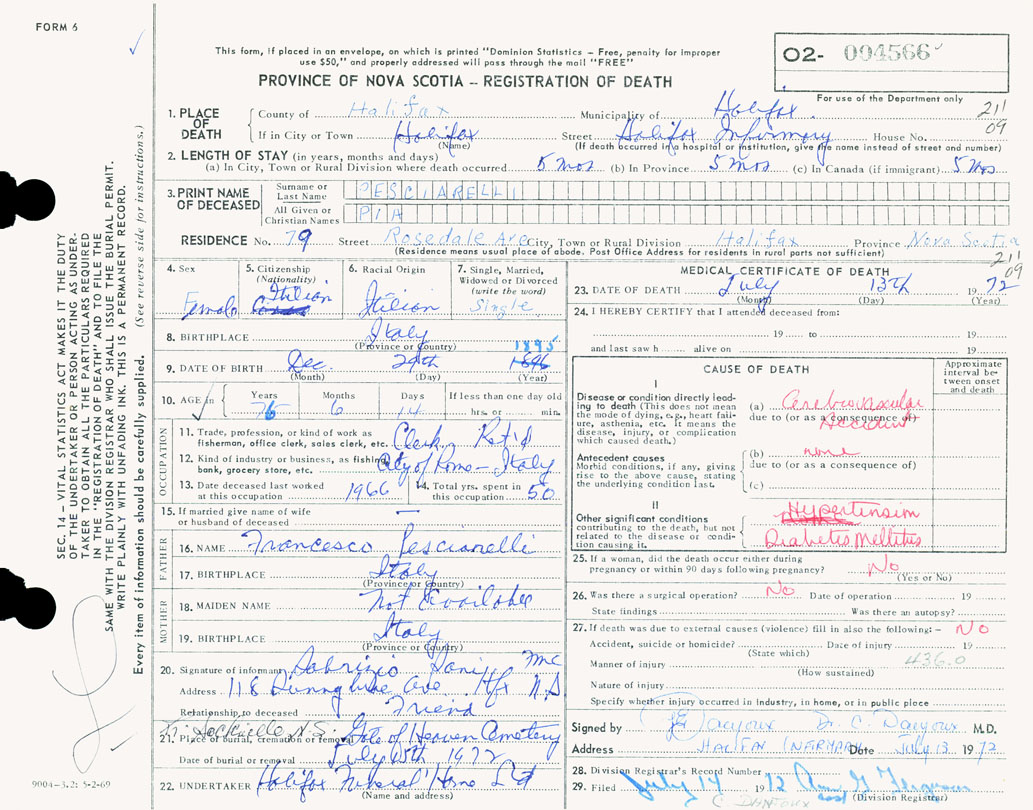 FORM 6
This form, if placed in an envelope, on which is printed "Dominion Statistics – Free, penalty for improper
use $50," and properly addressed will pass through the mail "FREE"
PROVINCE OF NOVA SCOTIA -- REGISTRATION OF DEATH
O2- 004566
For use of the Department only
211
09
1. PLACE OF DEATH
County of Halifax Municipality of Halifax
If in City or Town Halifax Street Halifax Infirmary House No.
(Name) (If death occurred in a hospital or institution, give the name instead of street and number)
2. LENGTH OF STAY (in years, months and days)
(a) In City, Town or Rural Division where death occurred 5 mos (b) In Province 5 mos (c) In Canada (if immigrant) 5 mos
3. PRINT NAME OF DECEASED
Surname or Last Name PESCIARELLI
All Given or Christian Names PIA
RESIDENCE No. 79 Street Rosedale Ave City, Town or Rural Division Halifax Province Nova Scotia
(Residence means usual place of abode. Post Office Address for residents in rural parts not sufficient)
211
09
4. Sex Female
5. Citizenship (Nationality) Italian
6. Racial Origin Italian
7. Single, Married, Widowed or Divorced (write the word) Single
8. BIRTHPLACE Italy
(Province or Country)
9. DATE OF BIRTH Dec. 29th 1896 1895
(Month) (Day) (Year)
10. AGE in Years 76 Months 6 Days 14 If less than one day old hrs. or min.
OCCUPATION
11. Trade, profession, or kind of work as
fisherman, office clerk, sales clerk, etc. Clerk, Ret'd
12. Kind of industry or business, as fishing,
bank, grocery store, etc. City of Rome – Italy
13. Date deceased last worked
at this occupation 1966
14. Total yrs. spent in
this occupation 50
15. If married give name of wife
or husband of deceased —
FATHER
16. NAME Francesco Pesciarelli
17. BIRTHPLACE Italy
(Province or Country)
MOTHER
18. MAIDEN NAME Not Available
19. BIRTHPLACE Italy
(Province or Country)
20. Signature of informant Fabrizio
Address 118 Ave Hfx N.S
Relationship to deceased Friend
21. Place of burial, cremation or removal Gate of Heaven Cemetery
Sackville N.S.
Date of burial or removal July 15th 1972
22. UNDERTAKER Halifax Funeral Home Ltd
(Name and address)
MEDICAL CERTIFICATE OF DEATH
23. DATE OF DEATH July 13th 1972
(Month) (Day) (Year)
24. I HEREBY CERTIFY that I attended deceased from:
19 to 19
and last saw h alive on 19
CAUSE OF DEATH
Approximate interval between onset and death
I
Disease or condition directly leading to death (This does not mean
the mode of dying, e.g., heart failure, asthenia, etc. It means the
disease, injury, or complication
which caused death.)
(a) Cerebrovascular
due to (or as a consequence of)
Accident
Antecedent causes
Morbid conditions, if any, giving
rise to the above cause, stating
the underlying condition last.
(b) none
due to (or as a consequence of)
(c)
II
Other significant conditions
contributing to the death, but not
related to the disease or condition causing it.
Hypertension
Diabetis Mellitus
25. If a woman, did the death occur either during
pregnancy or within 90 days following pregnancy? No
(Yes or No)
26. Was there a surgical operation? No Date of operation 19
State findings Was there an autopsy?
27. If death was due to external causes (violence) fill in also the following:- No
Accident, suicide or homicide? Date of injury 19
(State which)
Manner of injury 436.0
(How sustained)
Nature of injury
Specify whether injury occurred in industry, in home, or in public place
Signed by Dr. C. M.D.
Address HALIFAX INFIRMARY Date July 13 1972
28. Division Registrar's Record Number
29. Filed July 14 1972
(Division Registrar)
SEC. 14 – VITAL STATISTICS ACT MAKES IT THE DUTY
OF THE UNDERTAKER OR PERSON ACTING AS UNDER-
TAKER TO OBTAIN ALL THE PARTICULARS REQUIRED
IN THE "REGISTRATION OF DEATH" AND TO FILE THE
SAME WITH THE DIVISION REGISTRAR WHO SHALL ISSUE THE BURIAL PERMIT.
WRITE PLAINLY WITH UNFADING INK. THIS IS A PERMANENT RECORD.
Every item of information should be carefully supplied. (See reverse side for instructions.)
9004-3.2: 5-2-69